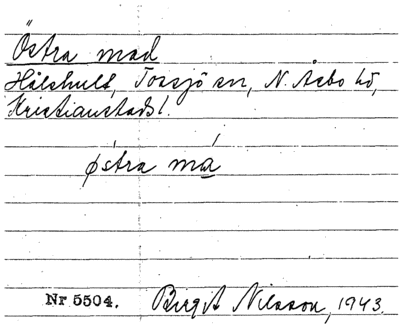 Östra mad
Hålshult, Tossjö sn, N. Åsbo hd,
Kristianstads l.
østra má
Nr 5504. Birgit Nilsson, 1943.